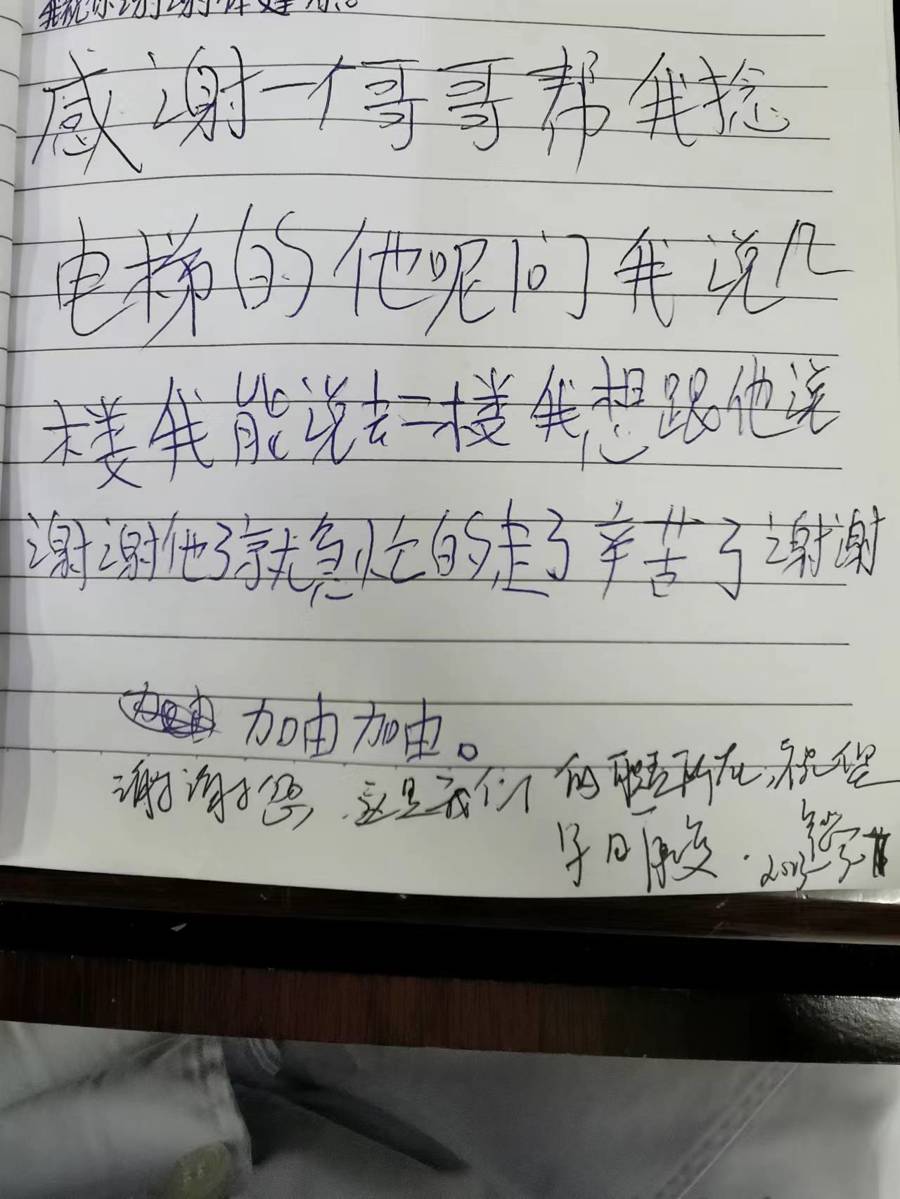 我祝你谢谢
感谢一个哥哥帮我捻
电梯的他呢问我说几
楼我能说去二楼我想跟他说
谢谢他了就急忙的走了辛苦了谢谢
加由加由。
谢谢您,这是我们的职责所在,祝您
早日康复.